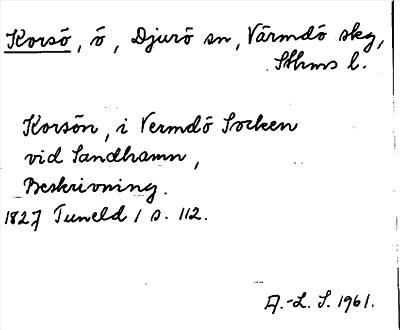 Korsö, ö, Djurö sn, Värmdö skg,
Sthms l.
Korsön, i Vermdö Socken
vid Sandhamn,
Beskrivning.
1827 Tuneld 1 s. 112.
A.-L. S. 1961.